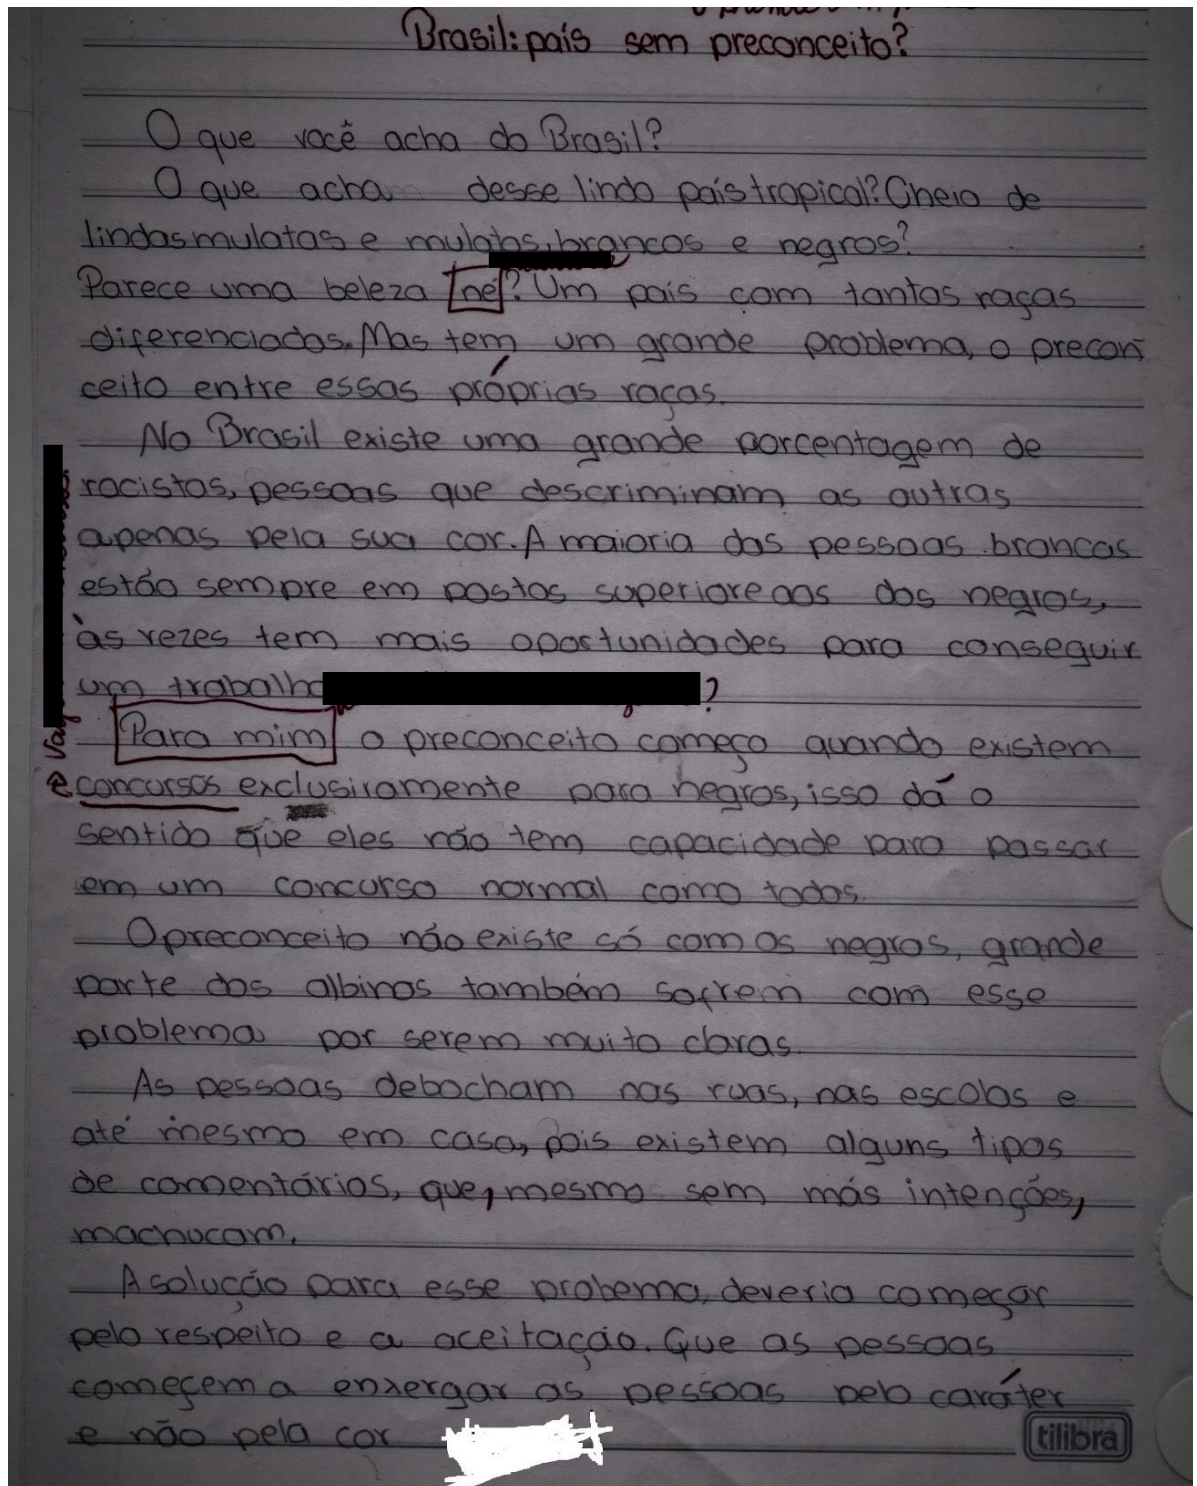 Brasil: país sem preconceito?
O que você acha do Brasil?
O que acha desse lindo país tropical? Cheio de
lindas mulatas e mulatos, brancos e negros?
Parece uma beleza né? Um país com tantas raças
diferenciadas. Mas tem um grande problema, o precon
ceito entre essas próprias raças.
No Brasil existe uma grande porcentagem de
racistas, pessoas que descriminam as outras
apenas pela sua cor. A maioria das pessoas brancas
estão sempre em postos superiore aos dos negros,
às vezes tem mais oportunidades para conseguir
um trabalho ?
Para mim o preconceito começa quando existem
concursos exclusivamente para negros, isso dá o
sentido que eles não tem capacidade para passar
em um concurso normal como todos.
O preconceito não existe só com os negros, grande
parte dos albinos também sofrem com esse
problema por serem muito claras.
As pessoas debocham nas ruas, nas escolas e
até mesmo em casa, pois existem alguns tipos
de comentários, que, mesmo sem más intenções,
machucam.
A solução para esse probema, deveria começar
pelo respeito e a aceitação. Que as pessoas
começem a enxergar as pessoas pelo caráter
e não pela cor
tilibra